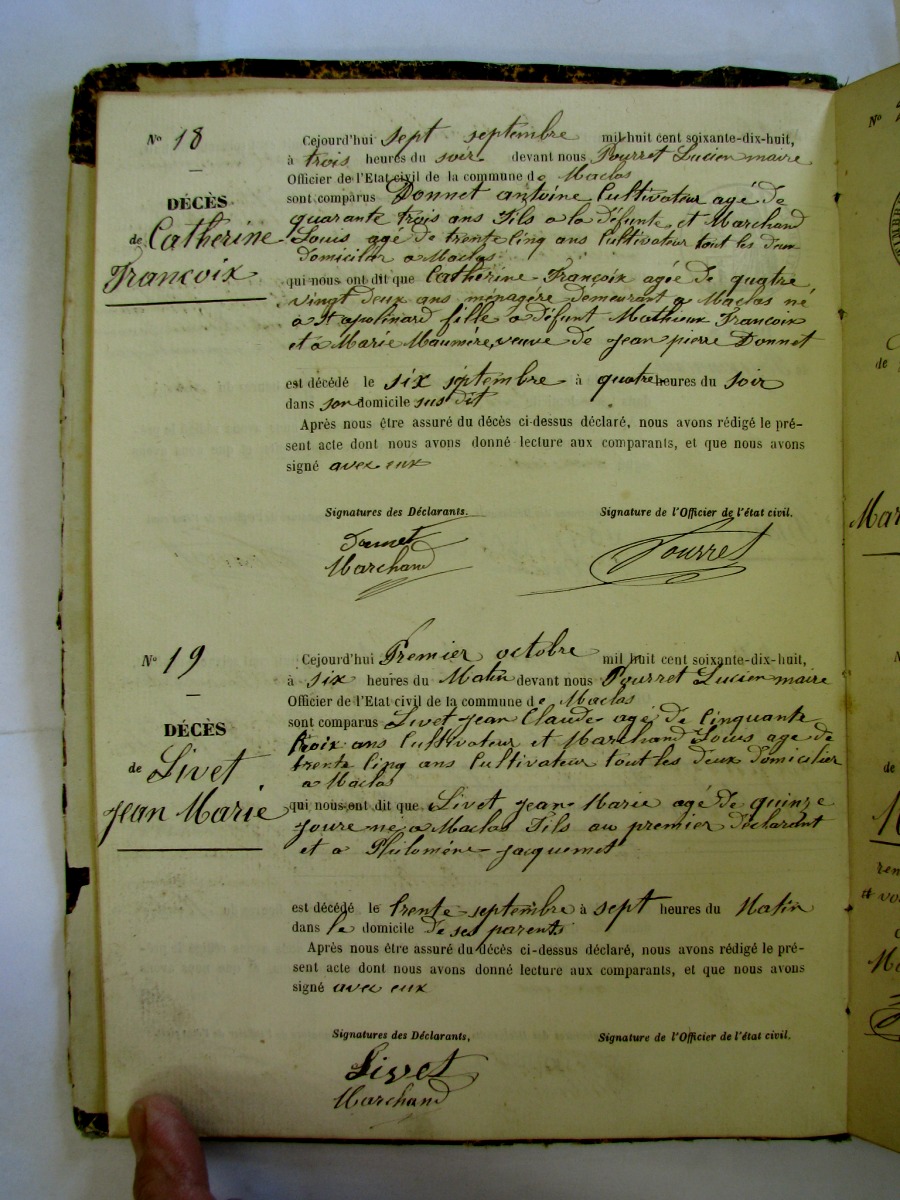 N° 18
DÉCÈS
de Catherine
Françoix
Cejourd'hui sept septembre mil huit cent soixante-dix-huit,
à trois heures du soir devant nous Pourret Lucien maire
Officier de l'Etat civil de la commune de Maclas
sont comparus Donnet antoine Cultivateur agé de
quarante trois ans Fils a la défunte et Marchand
Louis agé de trente Cinq ans Cultivateur tout les deux
domicilier a Maclas
qui nous ont dit que Catherine Françoix agée de quatre
vingt deux ans ménagére demeurant a Maclas né
a St apolinard fille a défunt Mathieux Francoix
et a Marie Maumère, veuve de Jean pierre Donnet
est décédé le six septembre à quatre heures du soir
dans son domicile sus dit
Après nous être assuré du décès ci-dessus déclaré, nous avons rédigé le pré-
sent acte dont nous avons donné lecture aux comparants, et que nous avons
signé avec eux
Signatures des Déclarants.
Signature de l'Officier de l'état civil.
Donnet
Marchand
Pourret
N° 19
DÉCÈS
de Livet
Jean Marie
Cejourd'hui Premier octobre mil huit cent soixante-dix-huit,
à six heures du Matin devant nous Pourret Lucien maire
Officier de l'Etat civil de la commune de Maclas
sont comparus Livet Jean Claude agé de Cinquante
troix ans Cultivateur et Marchand Louis age de
trente Cinq ans Cultivateur tout les deux domicilier
a Maclas
qui nous ont dit que Livet Jean Marie agé de quinze
joure né a Maclas Fils au premier déclarant
et a Philomène Jacquemet
est décédé le trente septembre à sept heures du Matin
dans le domicile de ses parents
Après nous être assuré du décès ci-dessus déclaré, nous avons rédigé le pré-
sent acte dont nous avons donné lecture aux comparants, et que nous avons
signé avec eux
Signatures des Déclarants,
Signature de l'Officier de l'état civil.
Livet
Marchand
N°
de
de